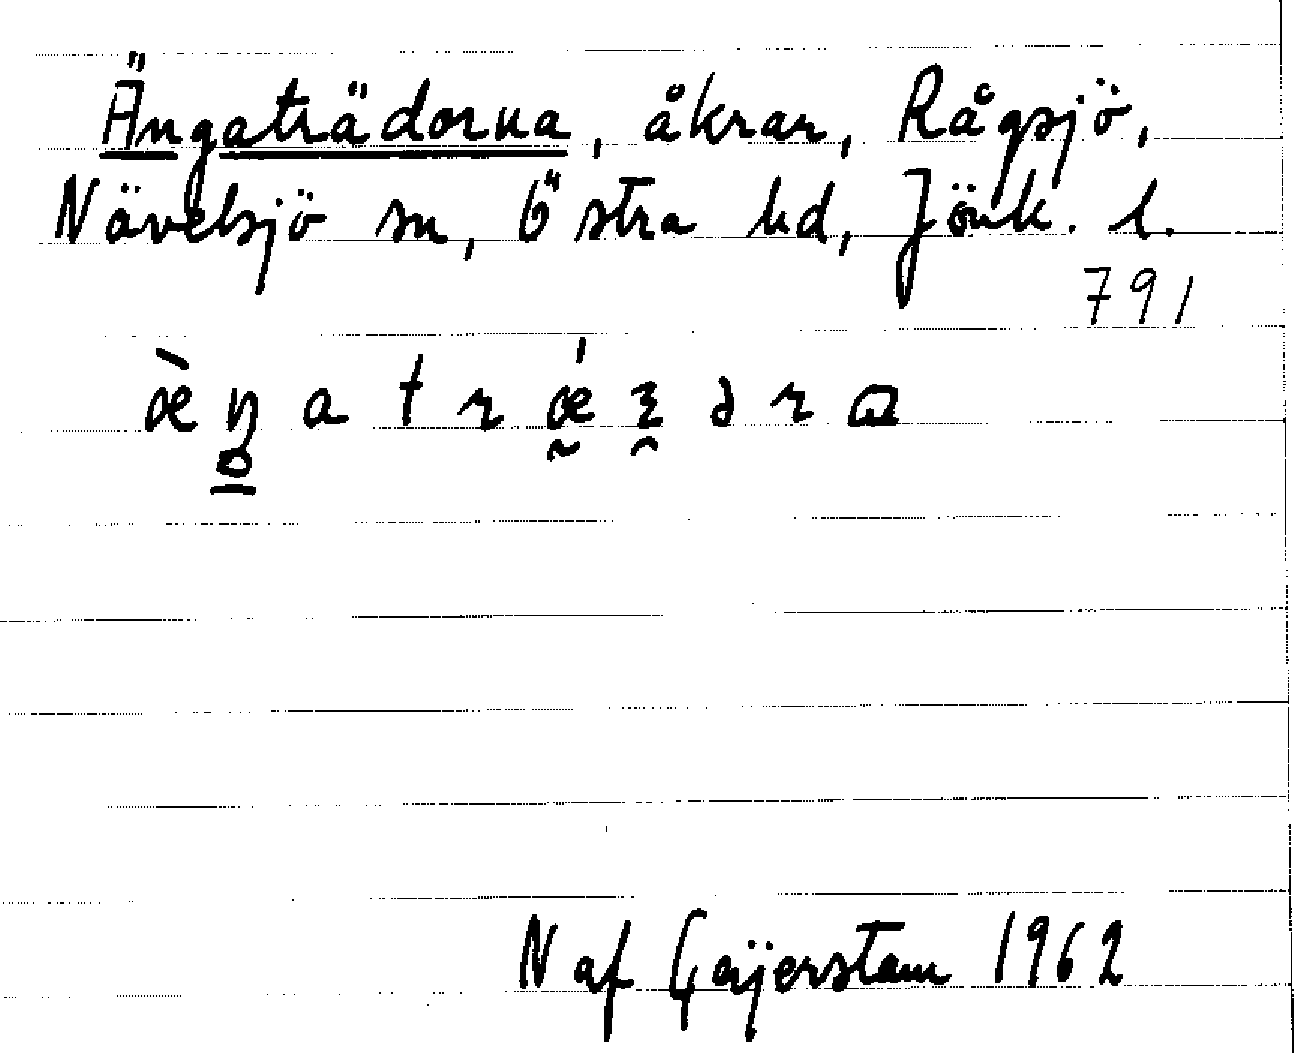 Ängaträdorna, åkrar, Rågsjö,
Nävelsjö sn, Östra hd, Jönk. l.
791
N af Geijerstam 1962